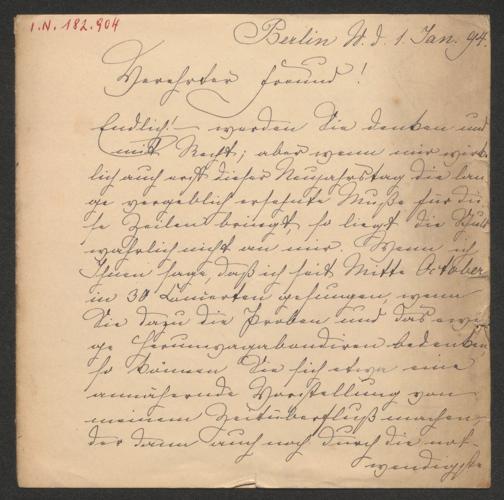 I.N. 182.904
Berlin W. d. 1. Jan. 94.
Verehrter Freund!
Endlich! – werden Sie denken und
mit Recht; aber wenn mir wirk-
lich auch erst dieser Neujahrstag die lan-
ge vergeblich ersehnte Muße für die-
se Zeilen bringt, so liegt die Schuld
wahrlich nicht an mir. Wenn ich
Ihnen sage, daß ich seit Mitte October
in 30 Concerten gesungen, wenn
Sie dazu die Proben und das ewi-
ge Herumvagabondiren bedenken,
so können Sie sich etwa eine
annähernde Vorstellung von
meinem Zeitüberfluß machen,
der dann auch noch durch die not-
wendigste